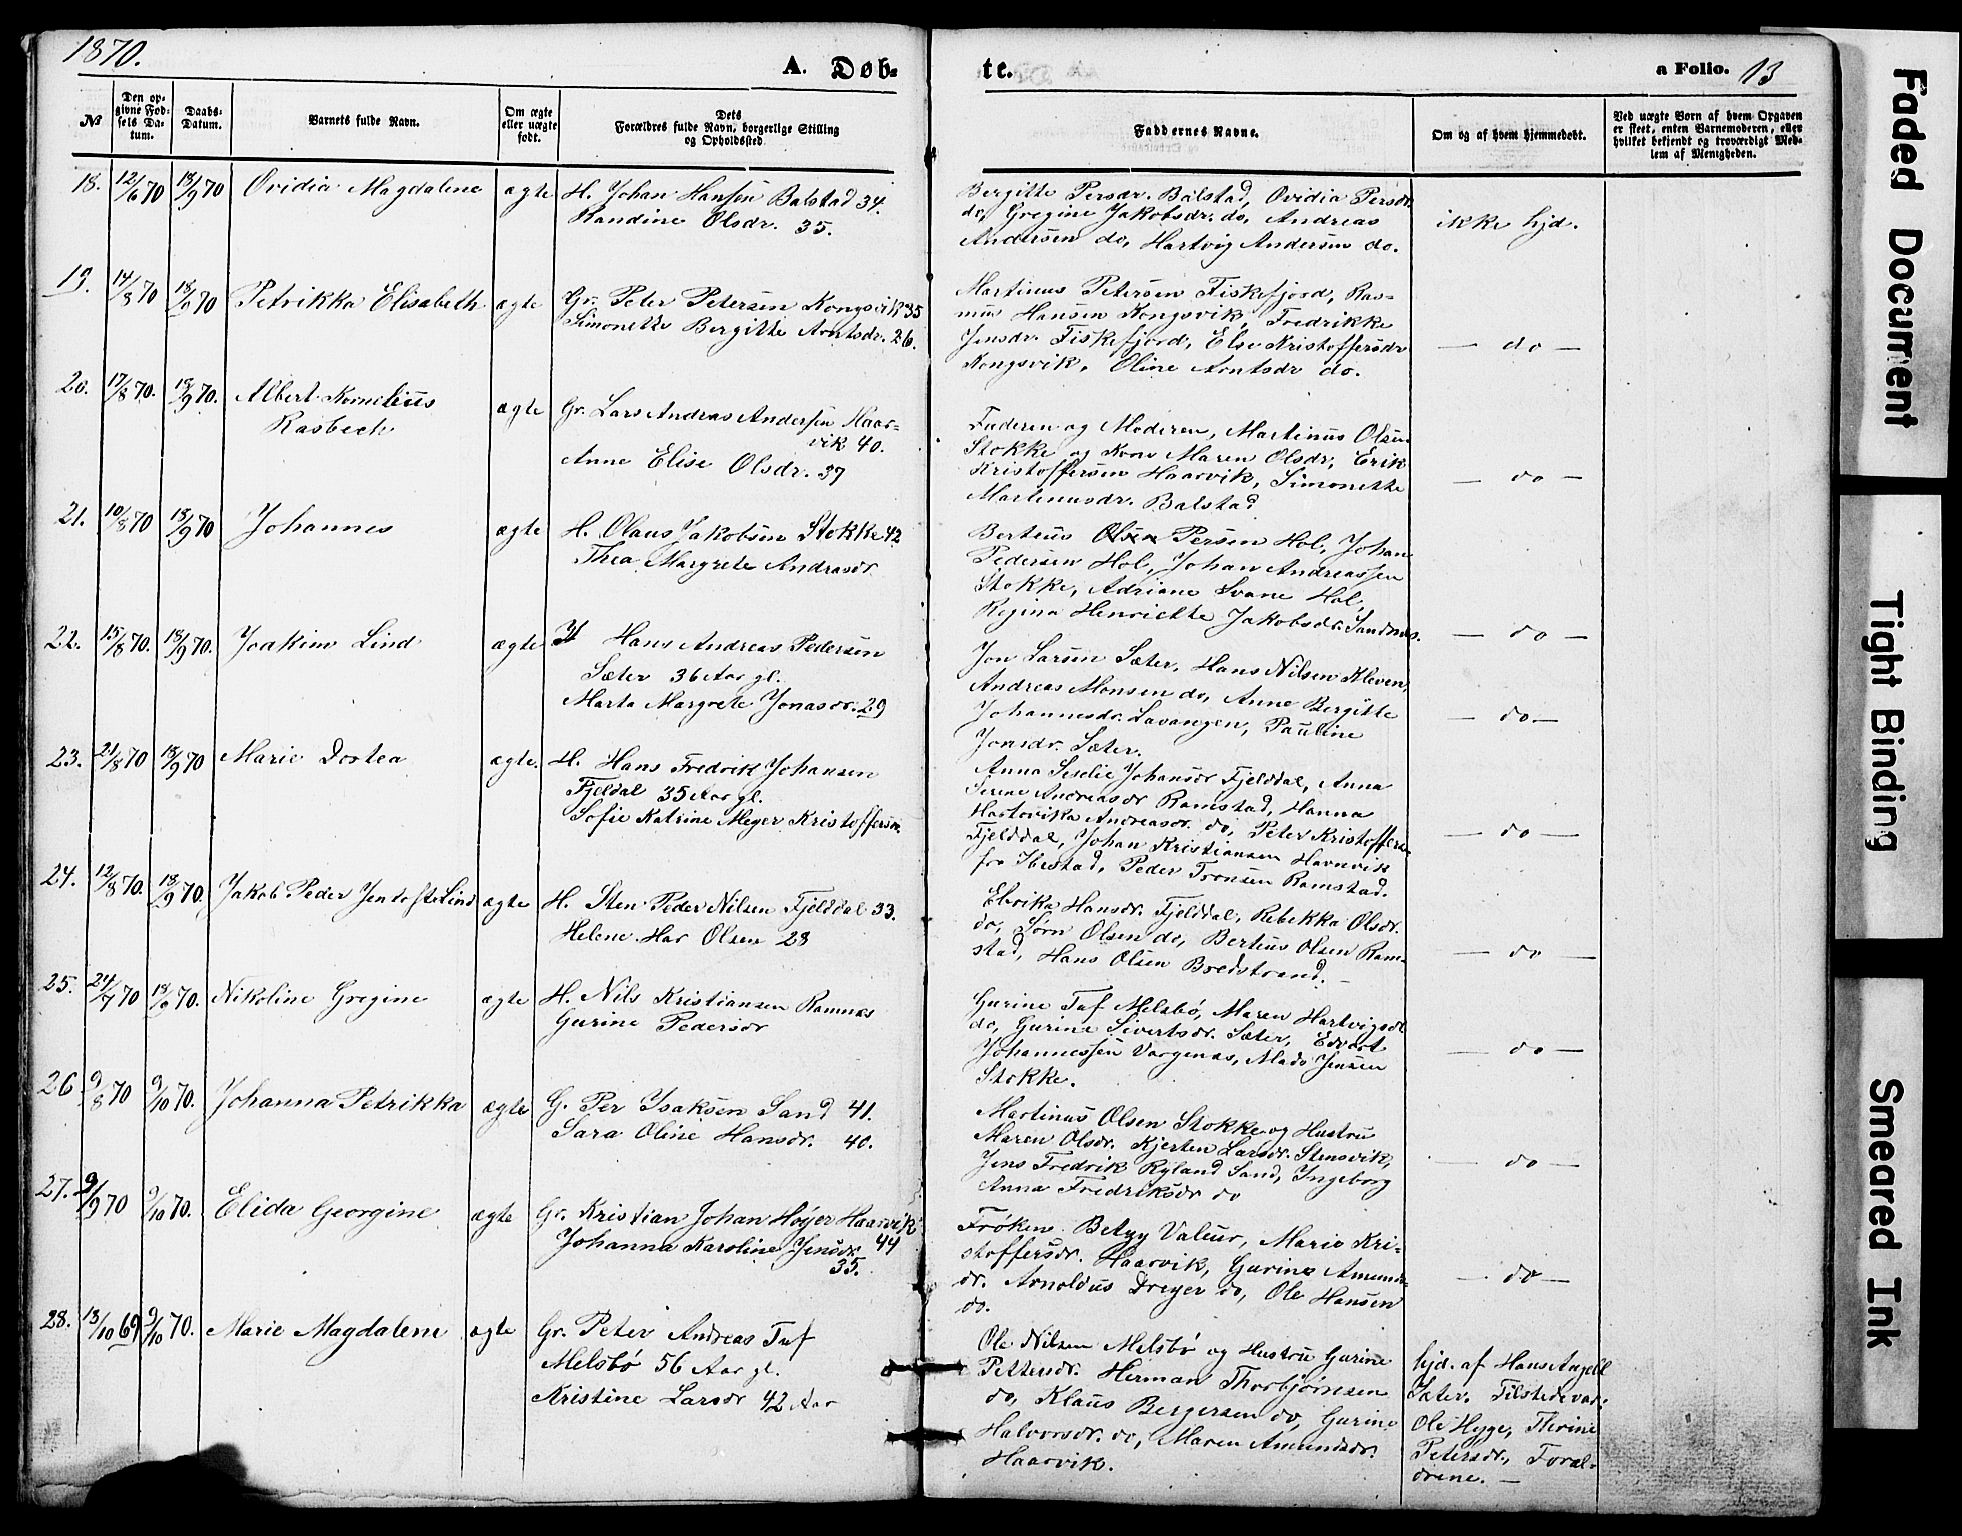 1870.
A. Døb-
№
Den op-
givne Fød-
sels Da-
tum.
Daabs-
Datum.
Barnets fulde Navn.
Om ægte
eller uægte
født.
Dets
Forældres fulde Navn, borgerlige Stilling
og Opholdssted.
18. 12/6 70 18/9 70 Ovidia Magdalene ægte H. Johan Hansen Balstad 34.
Randine Olsdr. 35.
19. 14/8 70 18/9 70 Petrikka Elisabeth ægte Gr. Peter Petersen Kongsvik 35
Simonette Bergitte Arntsdr. 26.
20. 17/8 70. 18/9 70. Albert Kornelius
Rasbech
ægte Gr. Lars Andreas Andersen Haar-
vik 40.
Anne Elise Olsdr. 37
21. 10/8 70 18/9 70 Johannes ægte H. Olaus Jakobsen Stokke 42
Thea Margrete Andreasdr
22. 15/8 70. 18/9 70. Joakim Lind ægte H Hans Andreas Pedersen
Sæter 36 Aar gl.
Marta Margrete Jonasdr. 29
23. 21/8 70 18/9 70 Marie Dortea ægte. H. Hans Fredrik Johansen
Fjeldal 35 Aar gl.
Sofie Katrine Meyer Kristoffersen
24. 12/8 70. 18/9 70. Jakob Peder Jentofte Lind ægte H. Sten Peder Nilsen Fjelddal 33.
Helene Mar Olsen 28
25. 24/7 70 18/9 70. Nikoline Gregine ægte H. Nils Kristiansen Ramnes
Gurine Pedersdr
26 9/8 70 9/10 70. Johanna Petrikka ægte G. Per Isaksen Sand 41.
Sara Oline Hansdr. 40.
27. 2/9 70 9/10 70. Elida Georgine ægte Gr. Kristian Johan Høyer Haarvik
Johanna Karoline Jensdr. 44
35.
28. 13/10 69 9/10 70. Marie Magdalene ægte Gr. Peter Andreas Tuf
Melsbø 56 Aar gl.
Kristine Larsdr 42 Aar
te.
a Folio. 13
Faddernes Navne.
Om og af hvem hjemmedøbt.
Ved uægte Børn af hvem Opgaven
er skeet, enten Barnemoderen, eller
hvilket bekjendt og troværdigt Med-
lem af Menigheden.
Bergitte Persdr. Balstad, Ovidia Persdr.
do, Gregine Jakobsdr. do, Andreas
Andersen do, Hartvig Andersen do.
ikke hjd.
Martinus Petersen Fiskefjord, Ras-
mus Hansen Kongsvik, Fredrikke
Jensdr. Fiskefjord, Else Kristoffersdr
Kongsvik, Oline Arntsdr do.
— do —
Faderen og Moderen, Martinus Olsen
Stokke og Kone Maren Olsdr, Erik
Kristoffersen Haarvik, Simonette
Martinusdr. Balstad
— do —
Berteus Olsen Persen Hol, Johan
Pedersen Hol, Johan Andreassen
Stokke, Adriane Svane Hol,
Regina Henriette Jakobsdr. Sandnes.
— do —
Jon Larsen Sæter, Hans Nilsen Kleven,
Andreas Monsen do, Anne Bergitte
Johannesdr. Lavangen, Pauline
Jonsdr. Sæter.
— do —
Anna Seselie Johansdr Fjelddal, Anna
Serene Andreasdr Ramstad, Hanna
Hartvikka Andreasdr. do, Peter Kristoffers.
Fjelddal, Johan Kristiansen Havnvik
fra Ibestad, Peder Tronsen Ramstad.
— do —
Elvrika Hansdr. Fjelddal, Rebekka Olsdr.
do, Sørn Olsen do, Berteus Olsen Ram-
stad, Hans Olsen Bredstrand. —
— do —
Gurine Tuf Melsbø, Maren Hartvigsdr
do, Gurine Sivertsdr. Sæter, Edvart
Johannessen Vargenes, Mads Jensen
Stokke.
— do —
Martinus Olsen Stokke og Hustru
Maren Olsdr. Kjersten Larsdr. Stensvik,
Jens Fredrik Ryland Sand, Ingeborg
Anna Fredriksdr do
— do —
Frøken Betzy Valeur, Marie Kri-
stoffersdr. Haarvik, Gurine Amunds-
dr. Arnoldus Dreyer do, Ole Hansen
do.
— do —
Ole Nilsen Melsbø og Hustru Gurine
Pettersdr. Herman Thorbjørnsen
do, Klaus Bergersen do, Gurine
Halvorsdr. do, Maren Amundsdr.
Haarvik.
hjd. af Hans Angell
Sæter. Tilstede var:
Ole Hygge, Therine
Petersdr., Foræl-
drene. —
Faded Document
Tight Binding
Smeared Ink